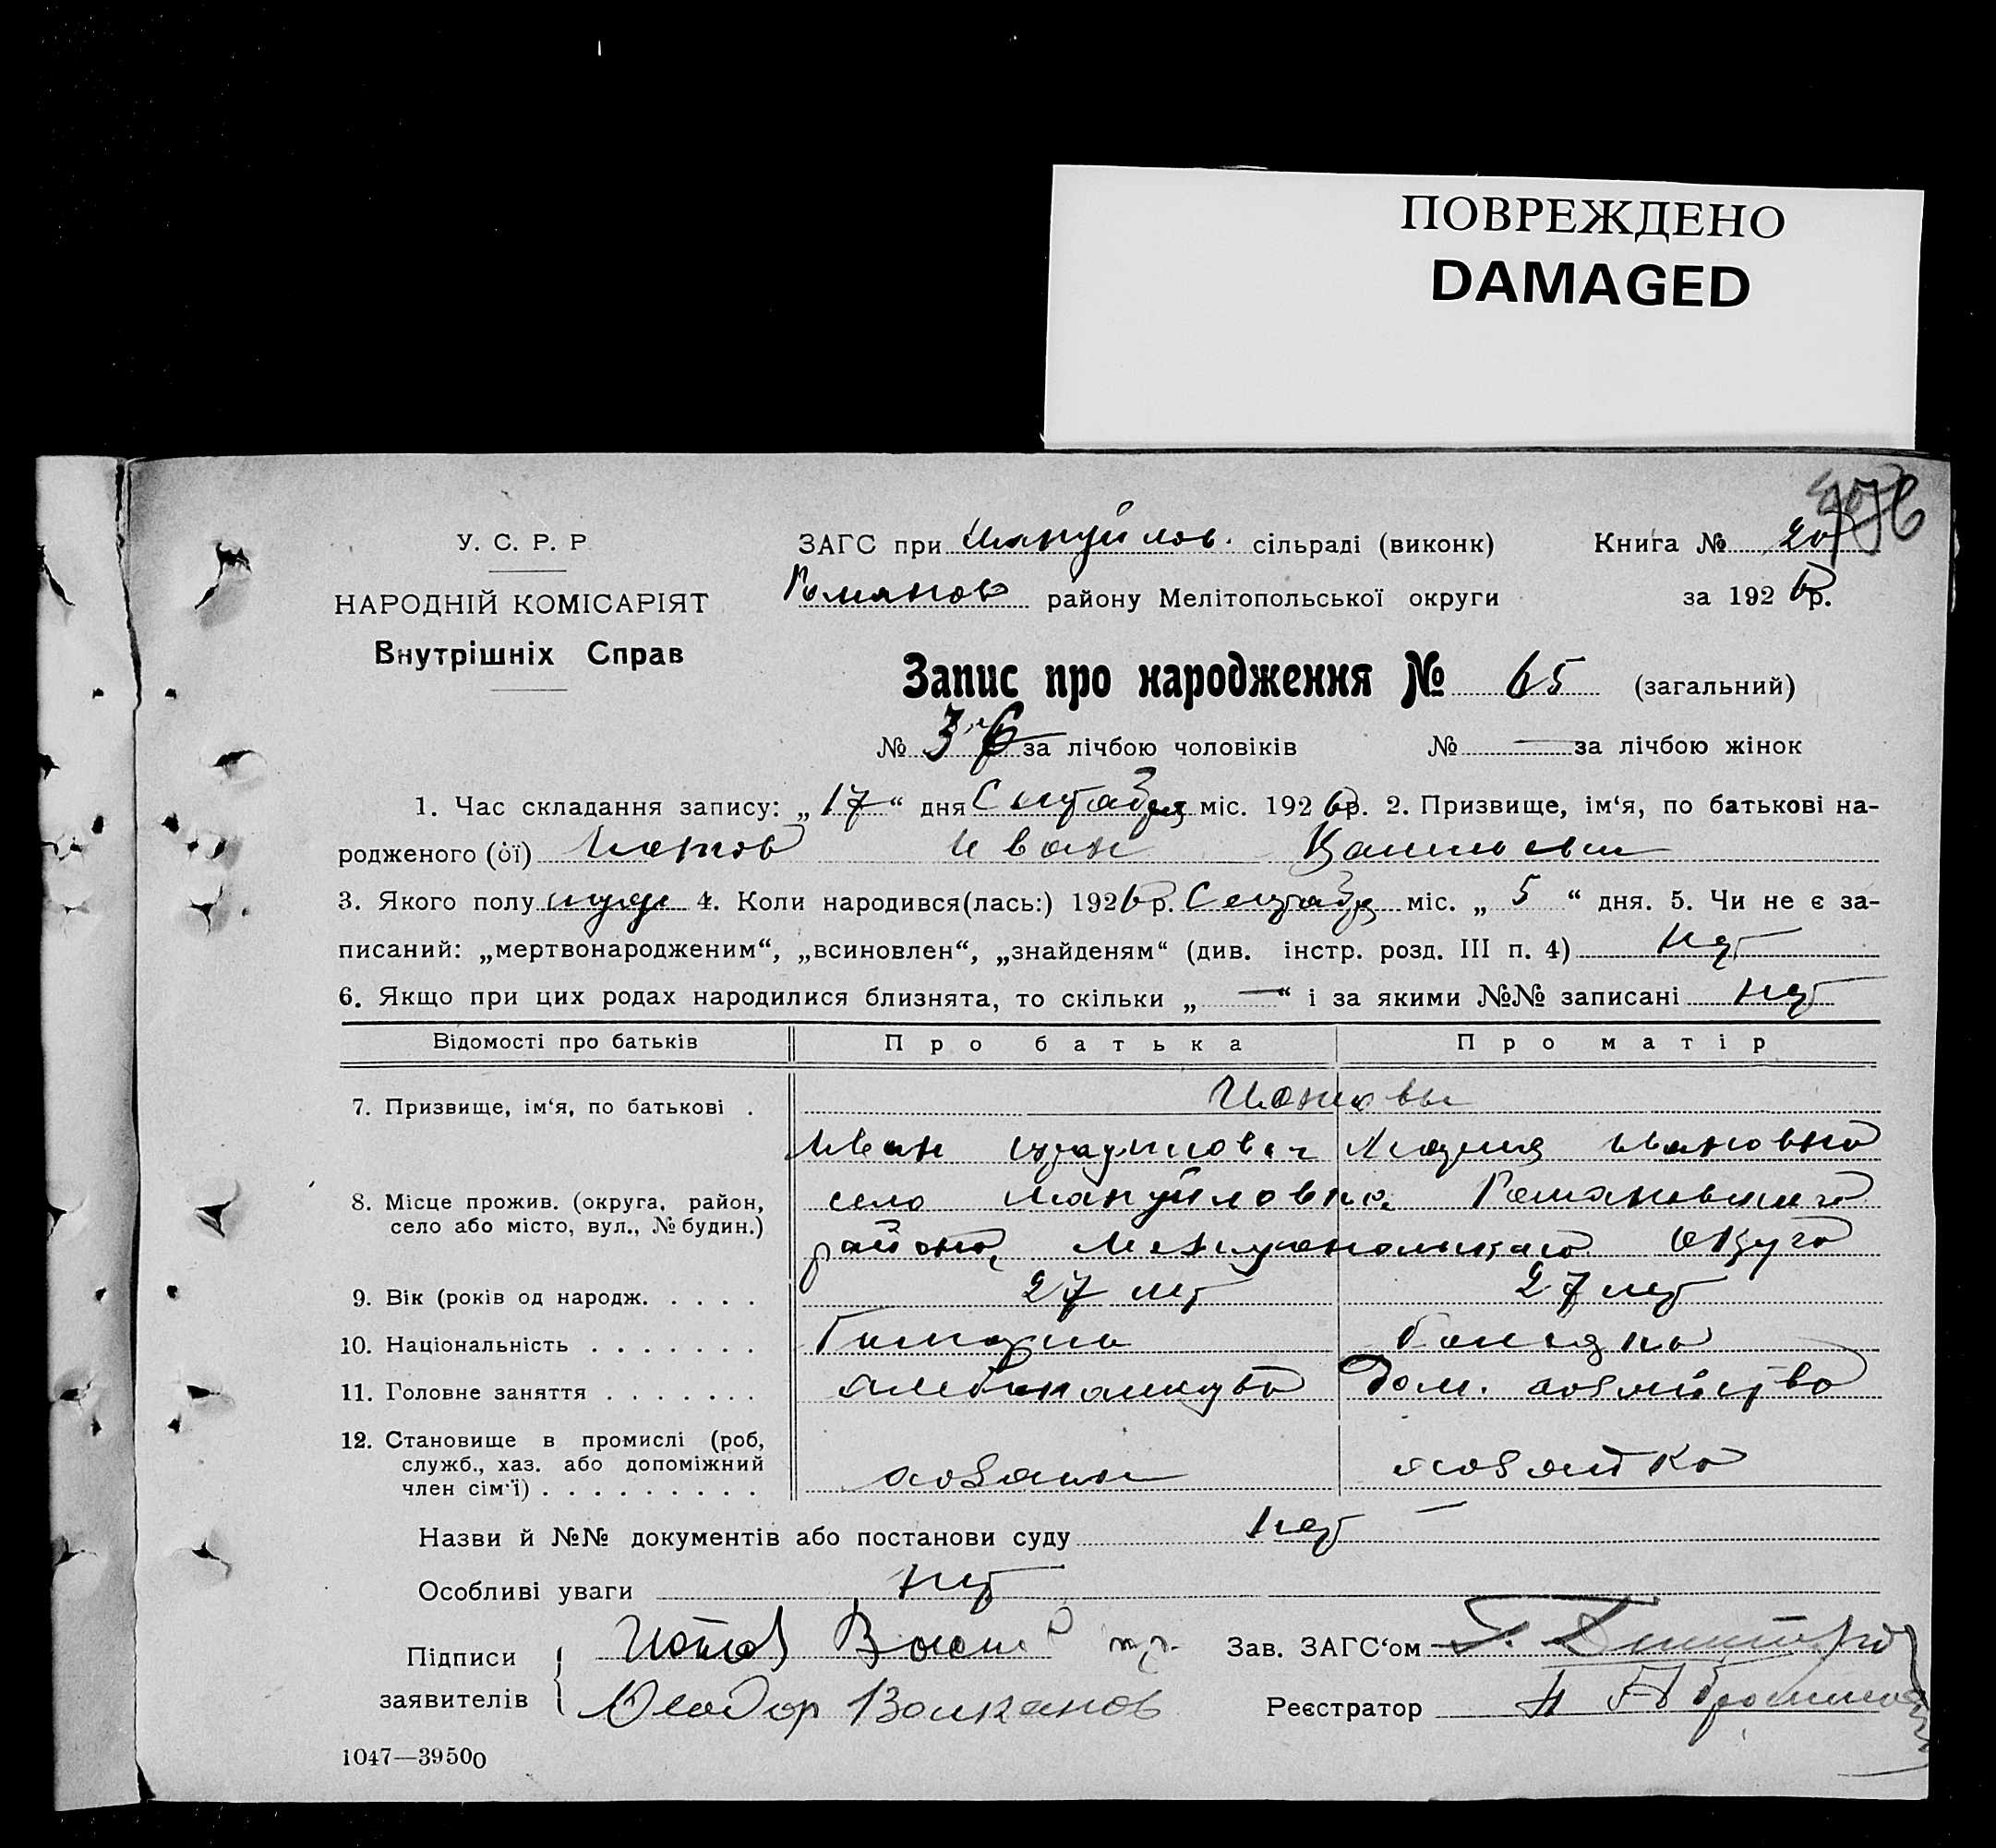 ПОВРЕЖДЕНО
DAMAGED
У. С. Р. Р
НАРОДНІЙ КОМІСАРІЯТ
Внутрішніх Справ
ЗАГС при Мануйлов. сільраді (виконк)
Книга № 20
Романов району Мелітопольської округи
за 1926 р.
Запис про народження № 65 (загальний)
№ 36 за лічбою чоловіків № — за лічбою жінок
1. Час складання запису: „17“ дня Сентября міс. 1926 р. 2. Призвище, ім‘я, по батькові на-
родженого (ої) Иван
3. Якого полу муж 4. Коли народився(лась:) 1926 р. Сентября міс. „ 5 “ дня. 5. Чи не є за-
писаний: „мертвонародженим“, „всиновлен“, „знайденям“ (див. інстр. розд. III п. 4) нет
6. Якщо при цих родах народилися близнята, то скільки „ — “ і за якими №№ записані нет
Відомості про батьків Про батька Про матір
7. Призвище, ім‘я, по батькові .
Иван Мария Ивановна
8. Місце прожив. (округа, район,
село або місто, вул., № будин.)
село Мануйловка Романовского
района, Мелитопольского округа
9. Вік (років од народж. . . . . 27 лет 27 лет
10. Національність . . . . . . .
11. Головне заняття . . . . . . . хлебопашество Дом. хозяйство
12. Становище в промислі (роб,
служб., хаз. або допоміжний
член сім‘ї) . . . . . . . . . хозяин хозяйка
Назви й №№ документів або постанови суду нет —
Особливі уваги нет
Підписи
заявителів
Зав. ЗАГС‘ом
Волканов
Реєстратор
1047—39500